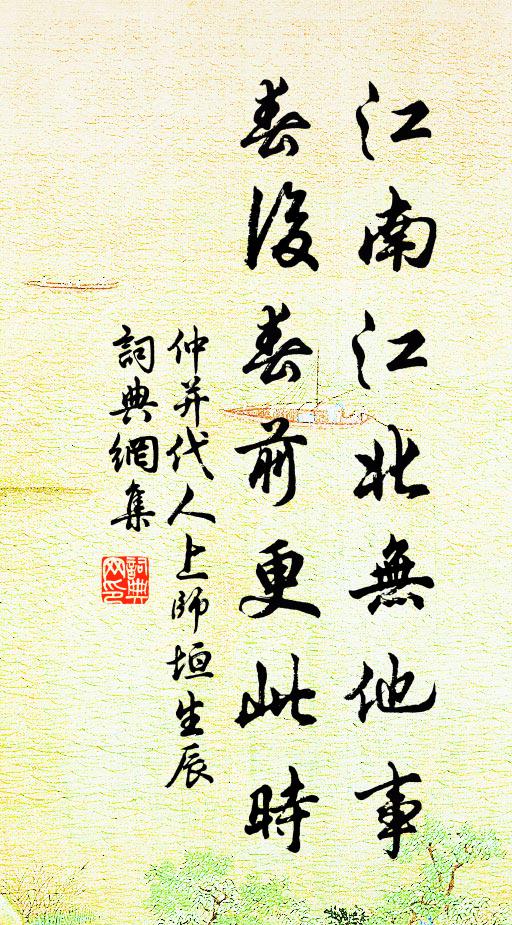 江南江北無他事
春後春前更此時
仲并代人上師垣生辰
詞典網集
詞典网印